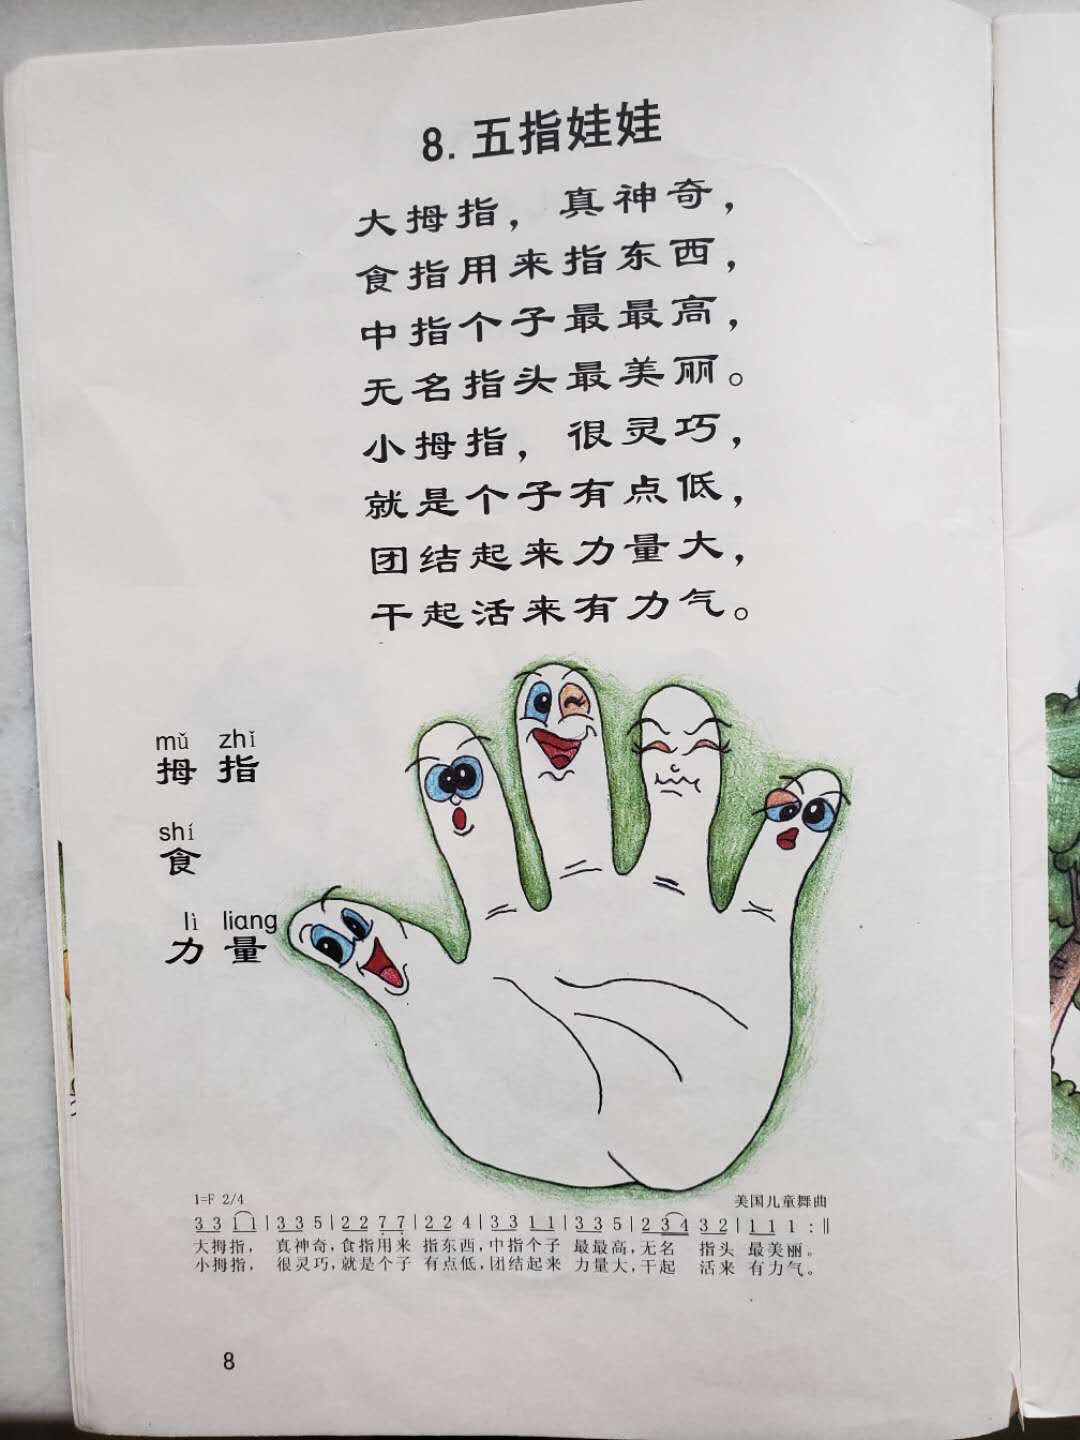 8.五指娃娃
大拇指，真神奇，
食指用来指东西，
中指个子最最高，
无名指头最美丽。
小拇指，很灵巧，
就是个子有点低，
团结起来力量大，
干起活来有力气。
mǔ zhǐ
拇指
shí
食
lì liang
力量
1=F 2/4 美国儿童舞曲
3 3 1 1 | 3 3 5 | 2 2 7 7 | 2 2 4 | 3 3 1 1 | 3 3 5 | 2 3 4 3 2 | 1 1 1 :‖
大拇指， 真神奇，食指用来 指东西，中指个子 最最高，无名 指头 最美丽。
小拇指， 很灵巧，就是个子 有点低，团结起来 力量大，干起 活来 有力气。
8